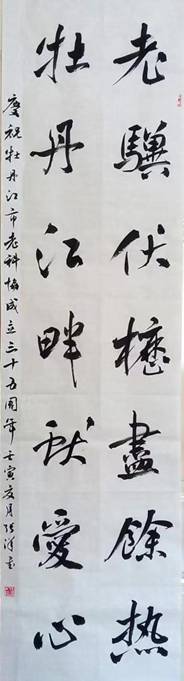 老驥伏櫪盡餘热
牡丹江畔献愛心
慶祝牡丹江市老科協成立三十五周年壬寅夏月张洋书